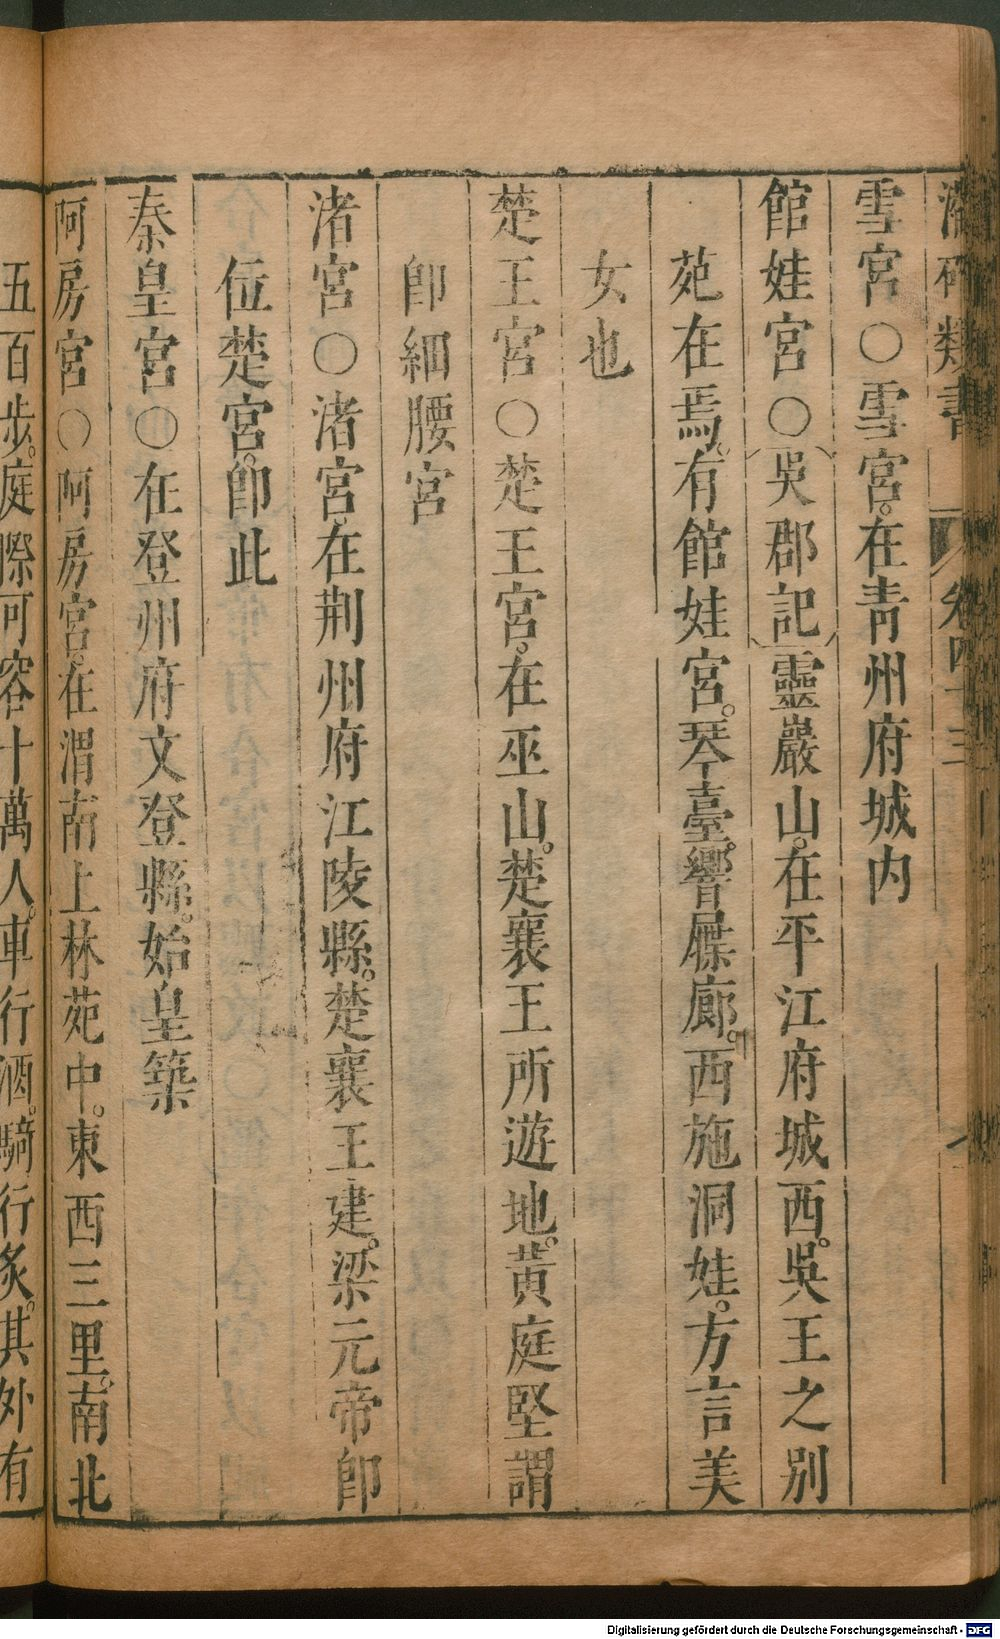 類書 卷四十三
雪宮○雪宮。在青州府城内
館娃宮○吳郡記靈巖山。在平江府城西。吳王之別
苑在焉。有館娃宮。琴臺。響屧廊。西施洞娃。方言美
女也
楚王宮○楚王宮。在巫山。楚襄王所遊地。黃庭堅謂
卽細腰宮
渚宮○渚宮。在荆州府江陵縣。楚襄王建。梁元帝卽
位楚宮。卽此
秦皇宮○在登州府文登縣。始皇築
阿房宮○阿房宮。在渭南上林苑中。東西三里。南北
五百步。庭際可容十萬人。車行酒。騎行炙。其外有
Digitalisierung gefördert durch die Deutsche Forschungsgemeinschaft - DFG